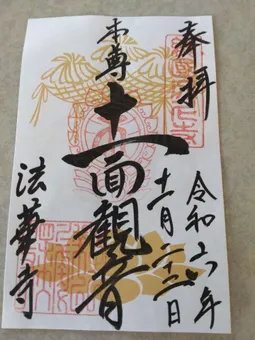 奉拝
令和六年
十一月二十三日
本尊
十一面觀音
法華寺